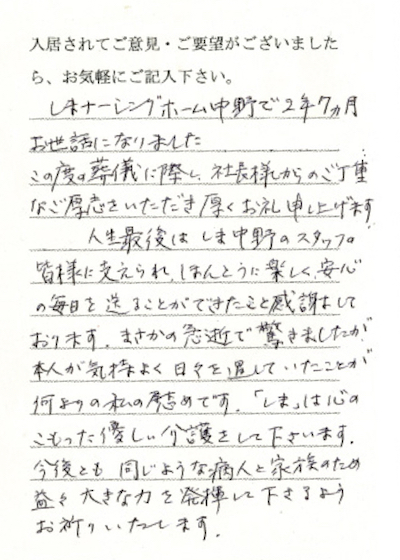 入居されてご意見・ご要望がございました
ら、お気軽にご記入下さい。
しまナーシングホーム中野で2年7ヵ月
お世話になりました
この度の葬儀に際し、社長様からのご丁重
なご厚志をいただき厚くお礼申し上げます
人生最後は しま中野のスタッフの
皆様に支えられ、ほんとうに楽しく、安心
の毎日を送ることができたこと感謝して
おります。まさかの急逝で驚きましたが、
本人が気持よく日々を過していたことが
何よりの私の慰めです。「しま」は心の
こもった優しい介護をして下さいます。
今後とも 同じような病人と家族のため
益々大きな力を発揮して下さるよう
お祈りいたします。